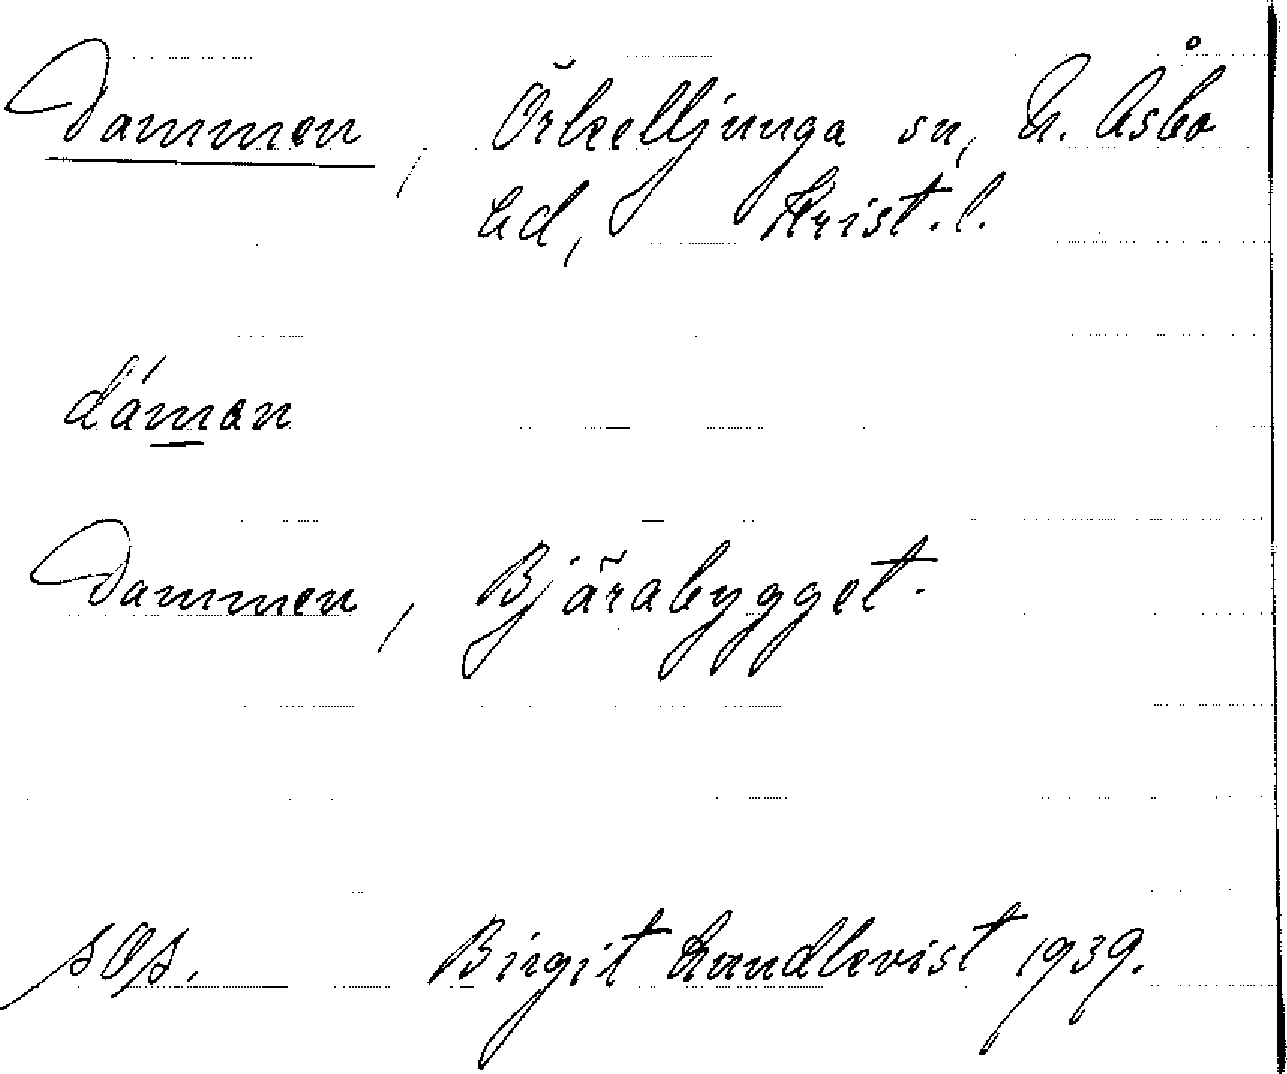 Dammen, Örkelljunga sn, N. Åsbo
hd, Krist. l.
dáman
Dammen, Bjärabygget.
Birgit Lundkvist 1939.